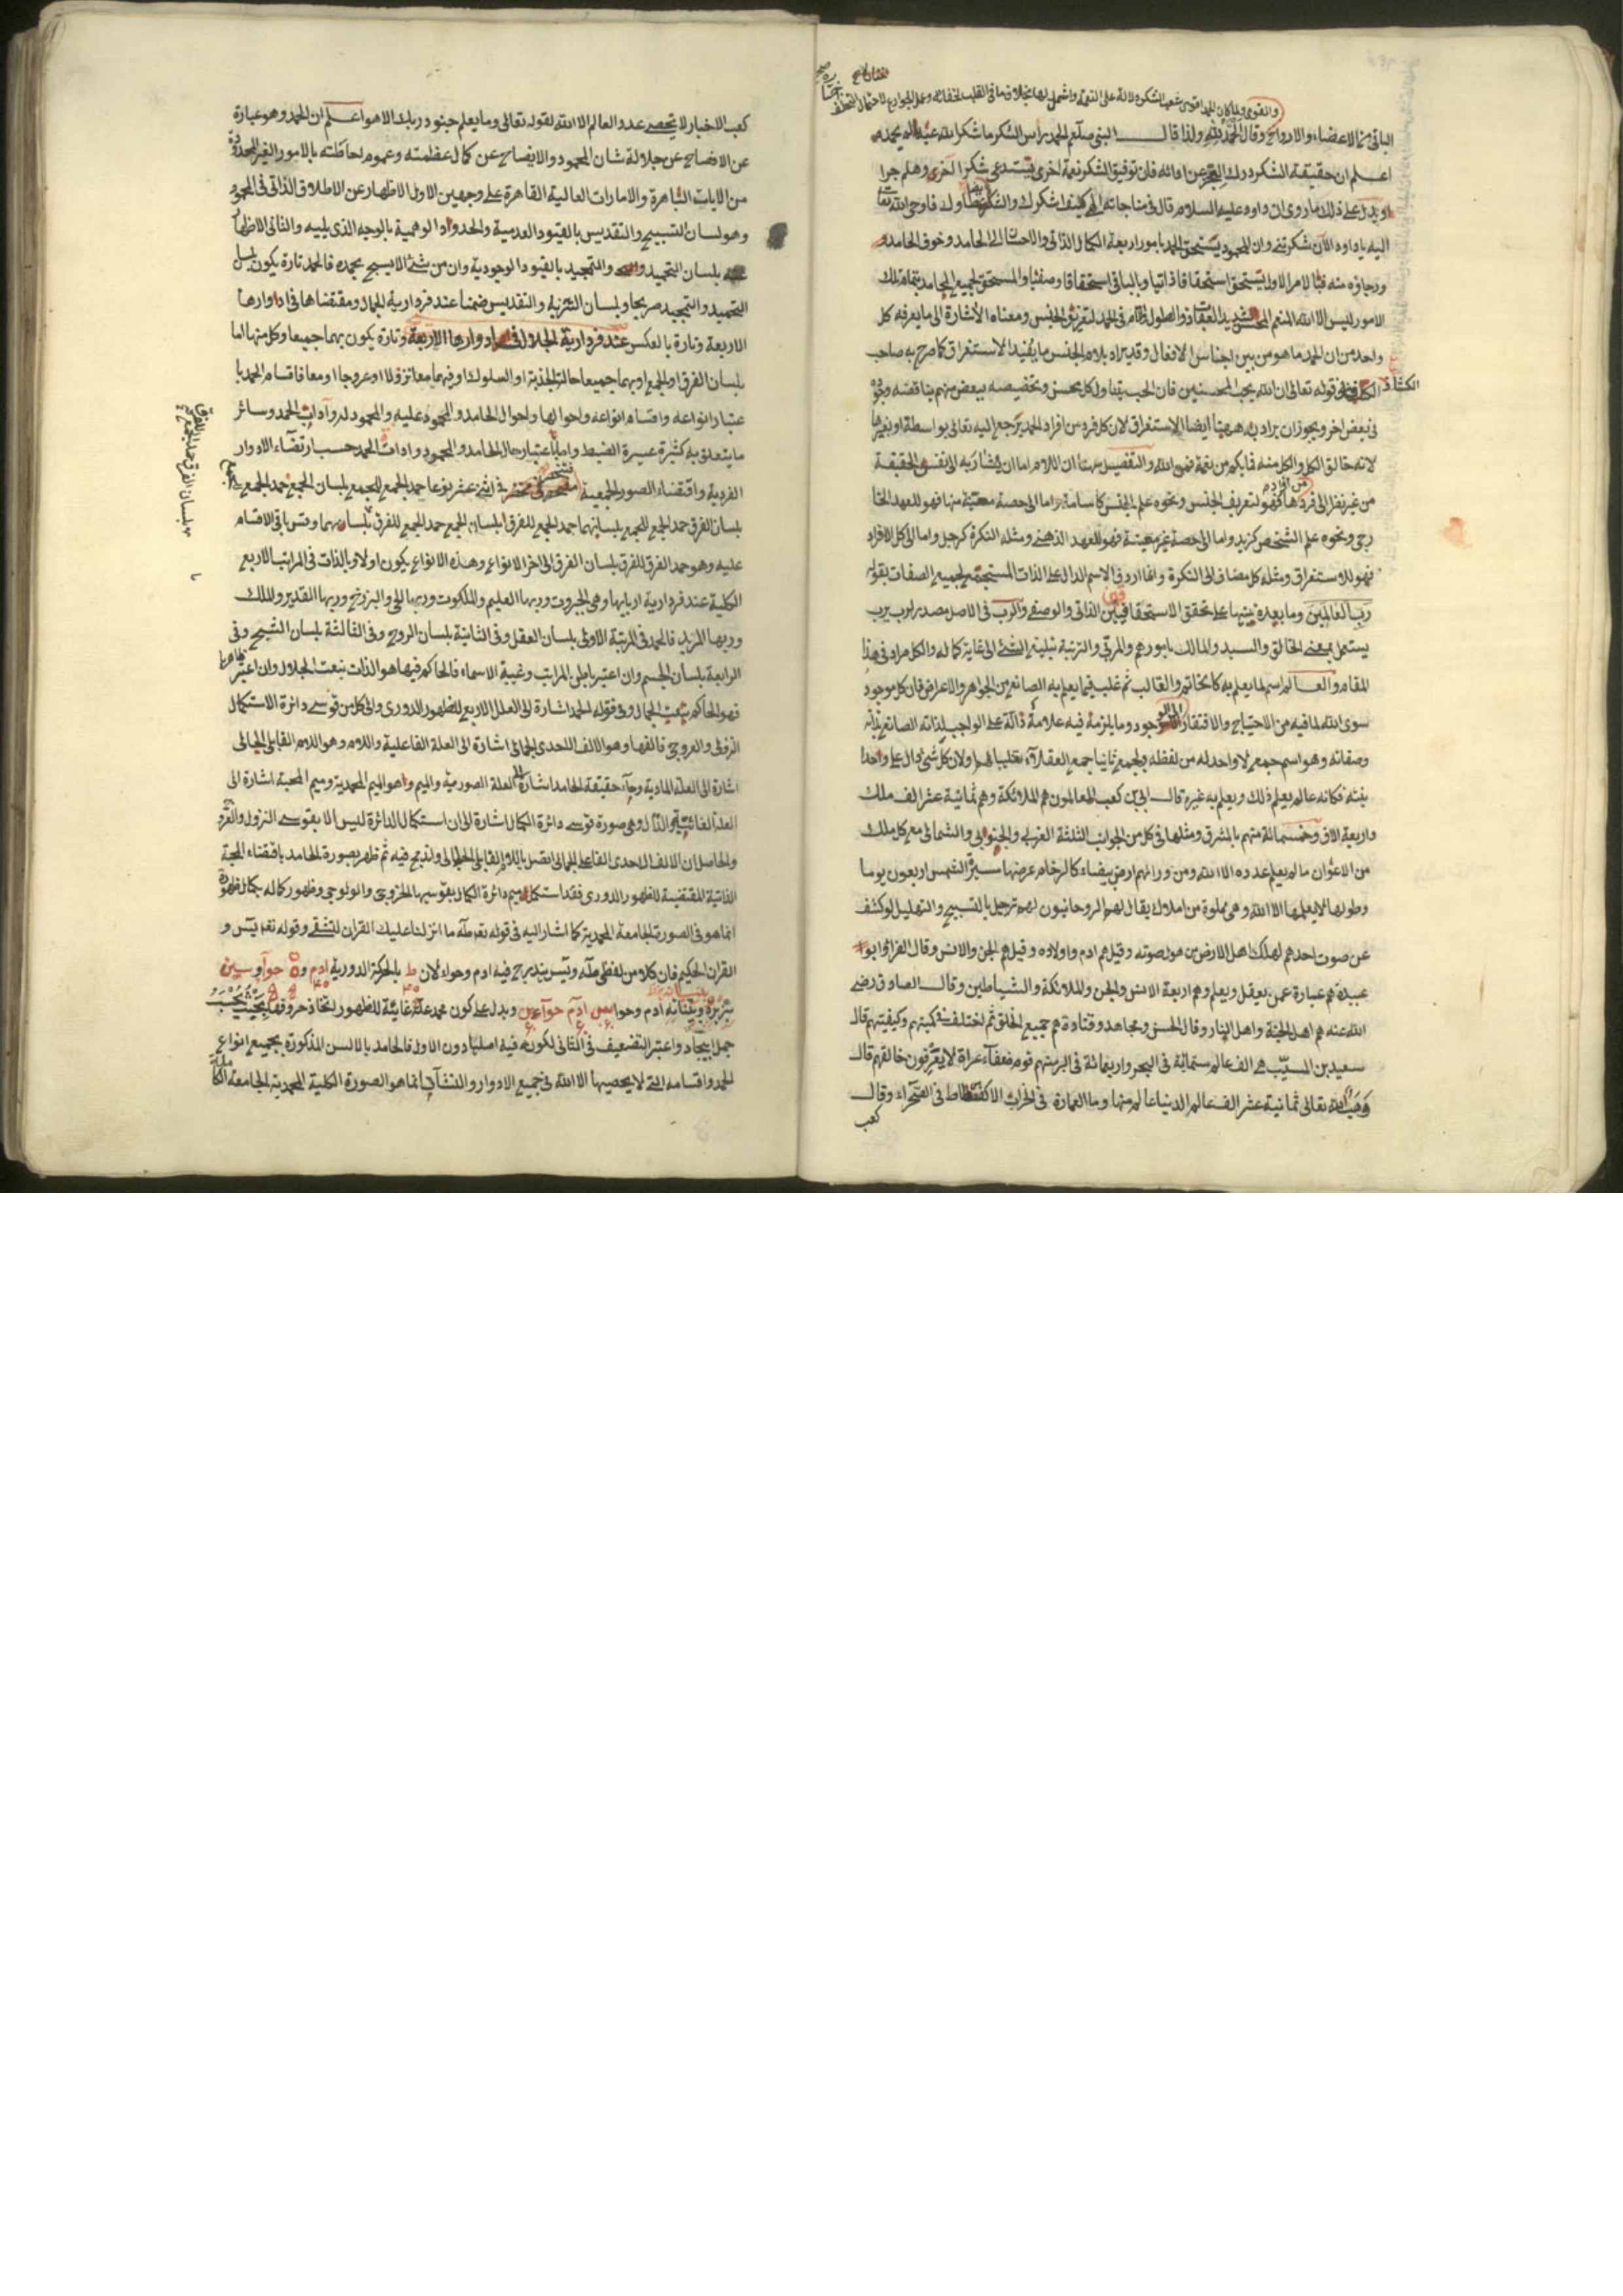 والقوى ولما كان الحمد اقوى شعب الشكر دلالة على النعمة واشمل لها بخلاف ما فى القلب لخفائه وعمل الجوارح لاحتمال التخلف
الباقى من الاعضاء والارواح وقال الحمد لله ولذا قال النبى صلعم الحمد راس الشكر ما شكر الله عبد لم يحمده
اعلم ان حقيقة الشكر درك العجز عن ادائه فان توفيق الشكر نعمة اخرى فيستدعى شكرا آخر وهلم جرا
ويدل على ذلك ما روى ان داود عليه السلام قال فى مناجاته الهى كيف اشكرك والشكر اولك فاوحى الله تعا
اليه يا داود الآن شكرتنى وان المحمود يستحق الحمد بامور اربعة الكمال الذاتى والاحسان الى الحامد وخوف الحامد
ورجاؤه منه فبالامر الاول يستحق استحقاقا ذاتيا وبالباقى استحقاقا وصفيا والمستحق لجميع المحامد بتمام تلك
الامور ليس الا الله المنعم المحسن شديد العقاب ذو الطول واللام فى الحمد لتعريف الجنس ومعناه الاشارة الى ما يعرفه كل
واحد من ان الحمد ما هو من بين اجناس الافعال وقد يراد بلام الجنس ما يفيد الاستغراق كما صرح به صاحب
الكشاف فى قوله تعالى ان الله يحب المحسنين فان الحب يتناول كل محسن وتخصيصه ببعض منهم يناقضه وجوده
فى بعض اخر ويجوز ان يراد به ههنا ايضا الاستغراق لان كل فرد من افراد الحمد يرجع اليه تعالى بواسطة او بغيرها
لانه خالق الكل والكل منه فما بكم من نعمة فمن الله والتفصيل ههنا ان اللام اما ان يشار به الى نفس الحقيقة
من غير نظر الى فردها فهو لتعريف الجنس ونحوه علم الجنس كاسامة واما الى حصة معينة منها فهو للعهد الخا
رجى ونحوه علم الشخص كزيد واما الى حصة غير معينة فهو للعهد الذهنى ومثله النكرة كرجل واما الى كل الافراد
فهو للاستغراق ومثله كل مضاف الى النكرة وانما اردف الاسم الدال على الذات المستجمع لجميع الصفات بقوله
رب العالمين وما بعده تنبيها على تحقق الاستحقاقين الذاتى والوصفى والرب فى الاصل مصدر رب يرب
يستعمل بمعنى الخالق والسيد والمالك بامورهم والمربى والتربية تبليغ الشئ الى غاية كماله والكل مراد فى هذا
المقام والعالم اسم لما يعلم به كالخاتم والقالب ثم غلب فيما يعلم به الصانع من الجواهر والاعراض فان كل موجود
سوى الله لما فيه من الاحتياج والافتقار الى الموجود وما يلزمه فيه علامة دالة على الواجب لذاته الصانع بذاته
وصفاته وهو اسم جمع لا واحد له من لفظه ويجمع ثانيا جمع العقلاء تغليبا لهم ولان كل شئ دال على واحدا
نيته فكانه عالم يعلم ذلك ويعلم به غيره قال ابى بن كعب العالمون هم الملائكة وهم ثمانية عشر الف ملك
واربعة الاف وخمسمائة منهم بالمشرق ومثلها فى كل من الجوانب الثلثة الغربى والجنوبى والشمالى مع كل ملك
من الاعوان ما لم يعلم عدده الا الله ومن ورائهم ارض بيضاء كالرخام عرضها مسيرة الشمس اربعون يوما
وطولها لا يعلمها الا الله وهى مملوة من املاك يقال لهم الروحانيون لهم زجل بالتسبيح والتهليل لو كشف
عن صوت احدهم لهلك اهل الارض من هول صوته وقيل هم ادم واولاده وقيل هم الجن والانس وقال الفراء وابو
عبيدة هم عبارة عمن يعقل ويعلم وهم اربعة الانس والجن والملائكة والشياطين وقال الصادق رضى
الله عنه هم اهل الجنة واهل النار وقال الحسن ومجاهد وقتادة هم جميع الخلق ثم اختلف فى كميتهم وكيفيتهم قال
سعيد بن المسيب هى الف عالم ستمائة فى البحر واربعمائة فى البر منهم قوم ضعفاء عراة لا يعرفون خالقهم قال
وهب لله تعالى ثمانية عشر الف عالم الدنيا عالم منها وما العمارة فى الخراب الا كفسطاط فى الصحراء وقال
كعب
كعب الاخبار لا تحصى عدد العالم الا الله لقوله تعالى وما يعلم جنود ربك الا هو اعلم ان الحمد وهو عبارة
عن الافصاح عن جلالة شان المحمود والايضاح عن كمال عظمته وعموم احاطته بالامور الغير المحدودة
من الايات الباهرة والامارات العالية القاهرة على وجهين الاول الاظهار عن الاطلاق الذاتى فى المحمود
وهو لسان التسبيح والتقديس بالقيود العدمية والحدود الوهمية بالوجه الذى يليه والثانى الاظهار
بلسان التحميد والتمجيد بالقيود الوجودية وان من شئ الا يسبح بحمده فالحمد تارة يكون بلسان
التحميد والتمجيد صريحا وبلسان التنزيه والتقديس ضمنا عند فردارية الجمال ومقتضاها فى ادوارها
الاربعة وتارة بالعكس عند فردارية الجلال فى ادوارها الاربعة وتارة يكون بهما جميعا وكل منهما اما
بلسان الفرق او الجمع او بهما جميعا حالتى الجذبة او السلوك او فيهما معا نزولا او عروجا او معا فاقسام الحمد با
عتبار انواعه واقسام انواعه واحوالها واحوال الحامد والمحمود عليه والمحمود له وآداب الحمد وسائر
ما يتعلق به كثيرة عسيرة الضبط واما باعتبار حال الحامد والمحمود وادات الحمد حسب ارتضاء الادوار
الفردية واقتضاء الصور الجمعية فى اثنى عشر نوعا حمد الجمع للجمع بلسان الجمع حمد الجمع للجمع
بلسان الفرق حمد الجمع للجمع بلسانهما حمد الجمع للفرق بلسان الجمع حمد الجمع للفرق بلسانهما وقس باقى الاقسام
عليه وهو حمد الفرق للفرق بلسان الفرق الى اخر الانواع وهذه الانواع يكون اولا وبالذات فى المراتب الاربع
الكلية عند فردارية اربابها وهى الجبروت وربها العليم والملكوت وربها الحى والبرزخ وربها القدير والملك
وربها المريد فالحمد فى المرتبة الاولى بلسان العقل وفى الثانية بلسان الروح وفى الثالثة بلسان الشبح وفى
الرابعة بلسان الجسم وان اعتبر باطن المراتب وغيبة الاسماء فالحاكم فيها هو الذات بنعت الجلال وان اعتبر ظاهرها
فهو الحاكم بنعت الجمال وفى قوله الحمد اشارة الى العلل الاربع للظهور الدورى والى كل من قوسى دائرة الاستكمال
النزولى والعروجى فالفها وهو الالف الاحدى الجمالى اشارة الى العلة الفاعلية واللام وهو اللام القابلى الجمالى
اشارة الى العلة المادية وحاء حقيقة الحامد اشارة الى العلة الصورية والميم وهو الميم المحمدية وميم المحبة اشارة الى
العلة الغائية والدال وهى صورة قوسى دائرة الكمال اشارة الى ان استكمال الدائرة ليس الا بقوسى النزول والعروج
والحاصل ان الالف الاحدى الفاعلى الجمالى اتصل باللام القابلى الجلالى واندمج فيه ثم ظهر بصورة الحامد باقتضاء المحبة
الذاتية المقتضية للظهور الدورى فقد استكمل ميم دائرة الكمال بقوسيها الخروجى والولوجى وظهور كماله بكمال ظهوره
انما هو فى الصورة الجامعة المحمدية كما اشار اليه فى قوله تعالى طه ما انزلنا عليك القران لتشقى وقوله تعا يس و
القران الحكيم فان كلا من لفظى طه ويس يندرج فيه ادم وحواء لان ط بالحركة الدورية ادم و ه حوا و سين
ادم وحوا ويدل على كون محمد علة غائية للظهور
واعتبر التضعيف فى الثانى لكونه فيه اصليا دون الاول فالحامد بالالسن المذكورة بجميع انواع
الحمد واقسامه التى لا يحصيها الا الله فى جميع الادوار والنشآت انما هو الصورة الكلية المحمدية الجامعة